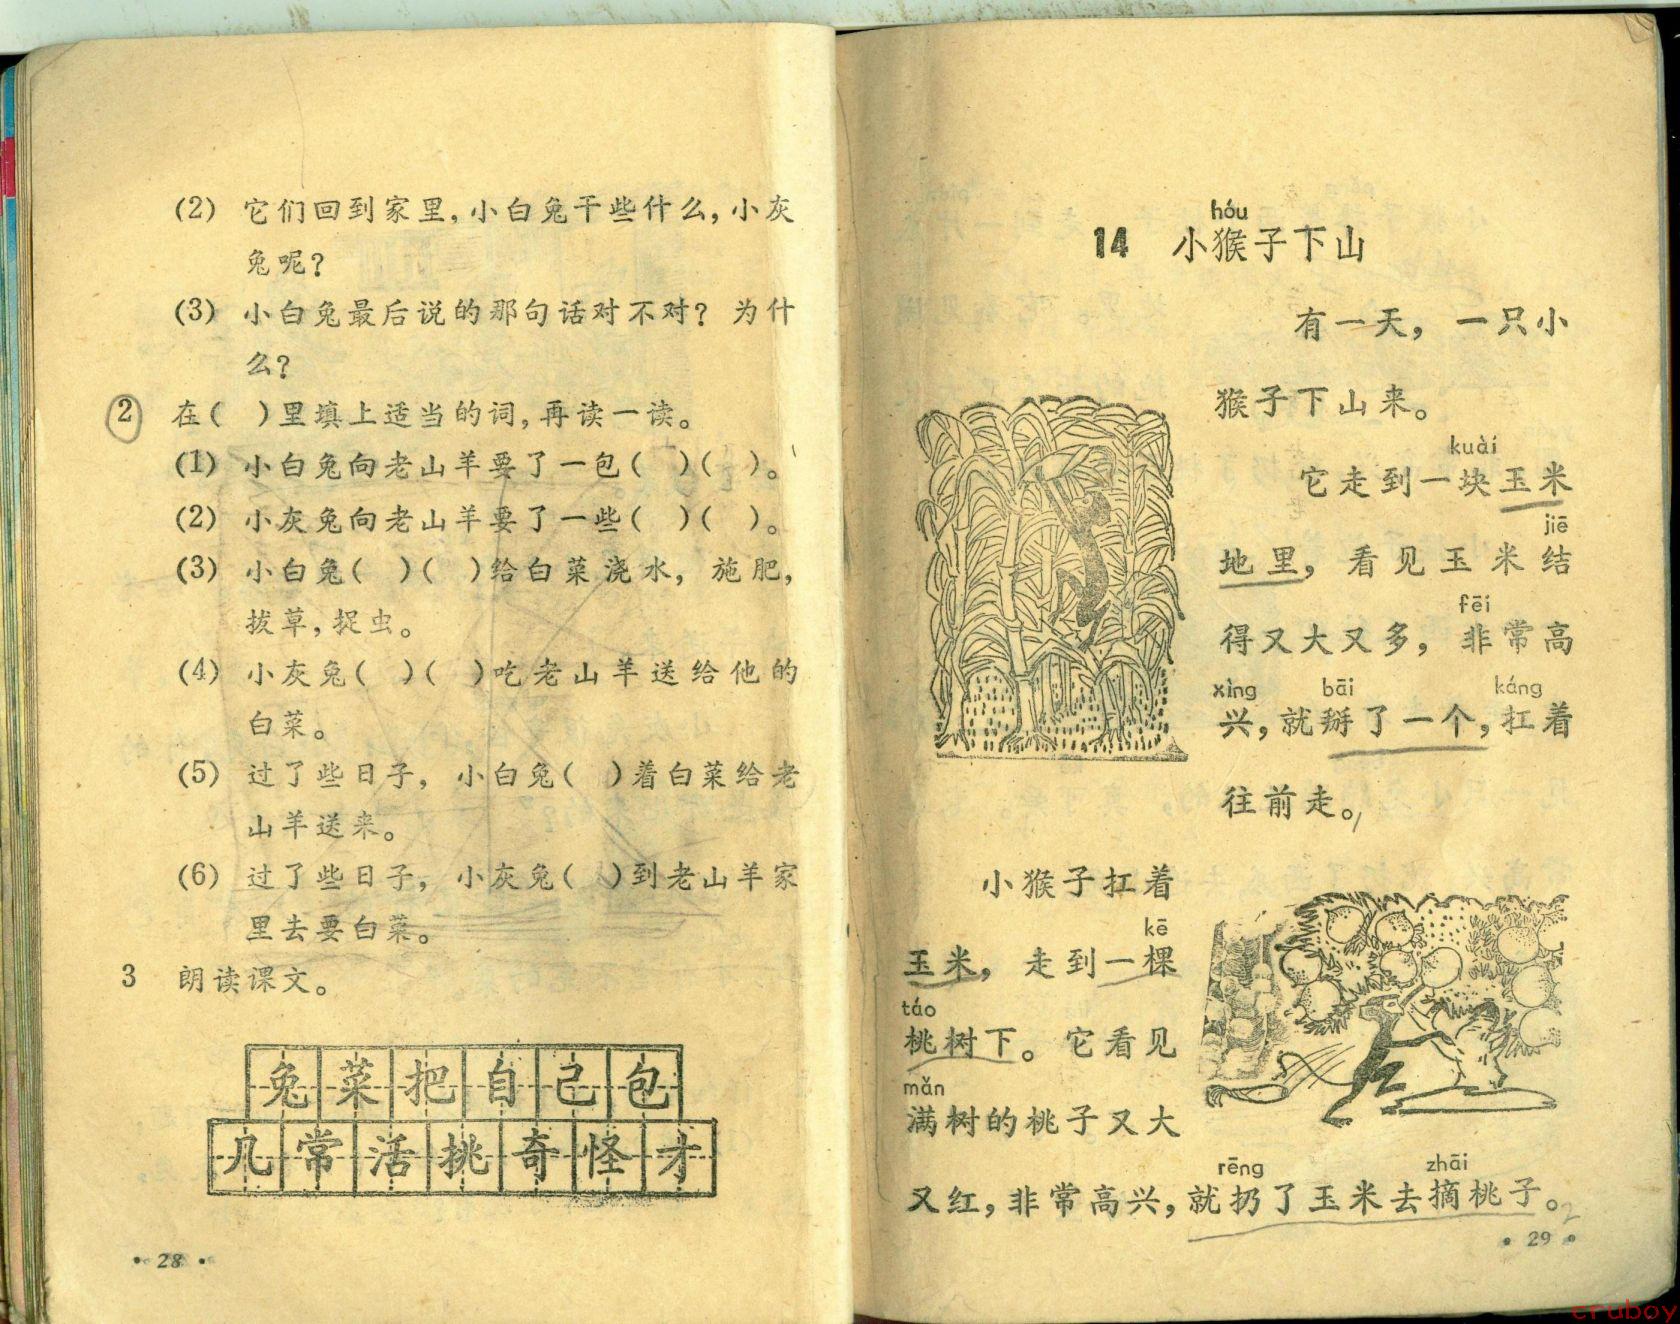 (2) 它们回到家里，小白兔干些什么，小灰
兔呢？
(3) 小白兔最后说的那句话对不对？为什
么？
2 在(　)里填上适当的词，再读一读。
(1) 小白兔向老山羊要了一包(　)(　)。
(2) 小灰兔向老山羊要了一些(　)(　)。
(3) 小白兔(　)(　)给白菜浇水，施肥，
拔草，捉虫。
(4) 小灰兔(　)(　)吃老山羊送给他的
白菜。
(5) 过了些日子，小白兔(　)着白菜给老
山羊送来。
(6) 过了些日子，小灰兔(　)到老山羊家
里去要白菜。
3 朗读课文。
兔菜把自己包
几常活挑奇怪才
• 28 •
hóu
14 小猴子下山
有一天，一只小
猴子下山来。
kuài
它走到一块玉米
jiē
地里，看见玉米结
fēi
得又大又多，非常高
xìng bāi káng
兴，就掰了一个，扛着
往前走。
小猴子扛着
kē
玉米，走到一棵
táo
桃树下。它看见
mǎn
满树的桃子又大
rēng zhāi
又红，非常高兴，就扔了玉米去摘桃子。
2
• 29 •
cruboy